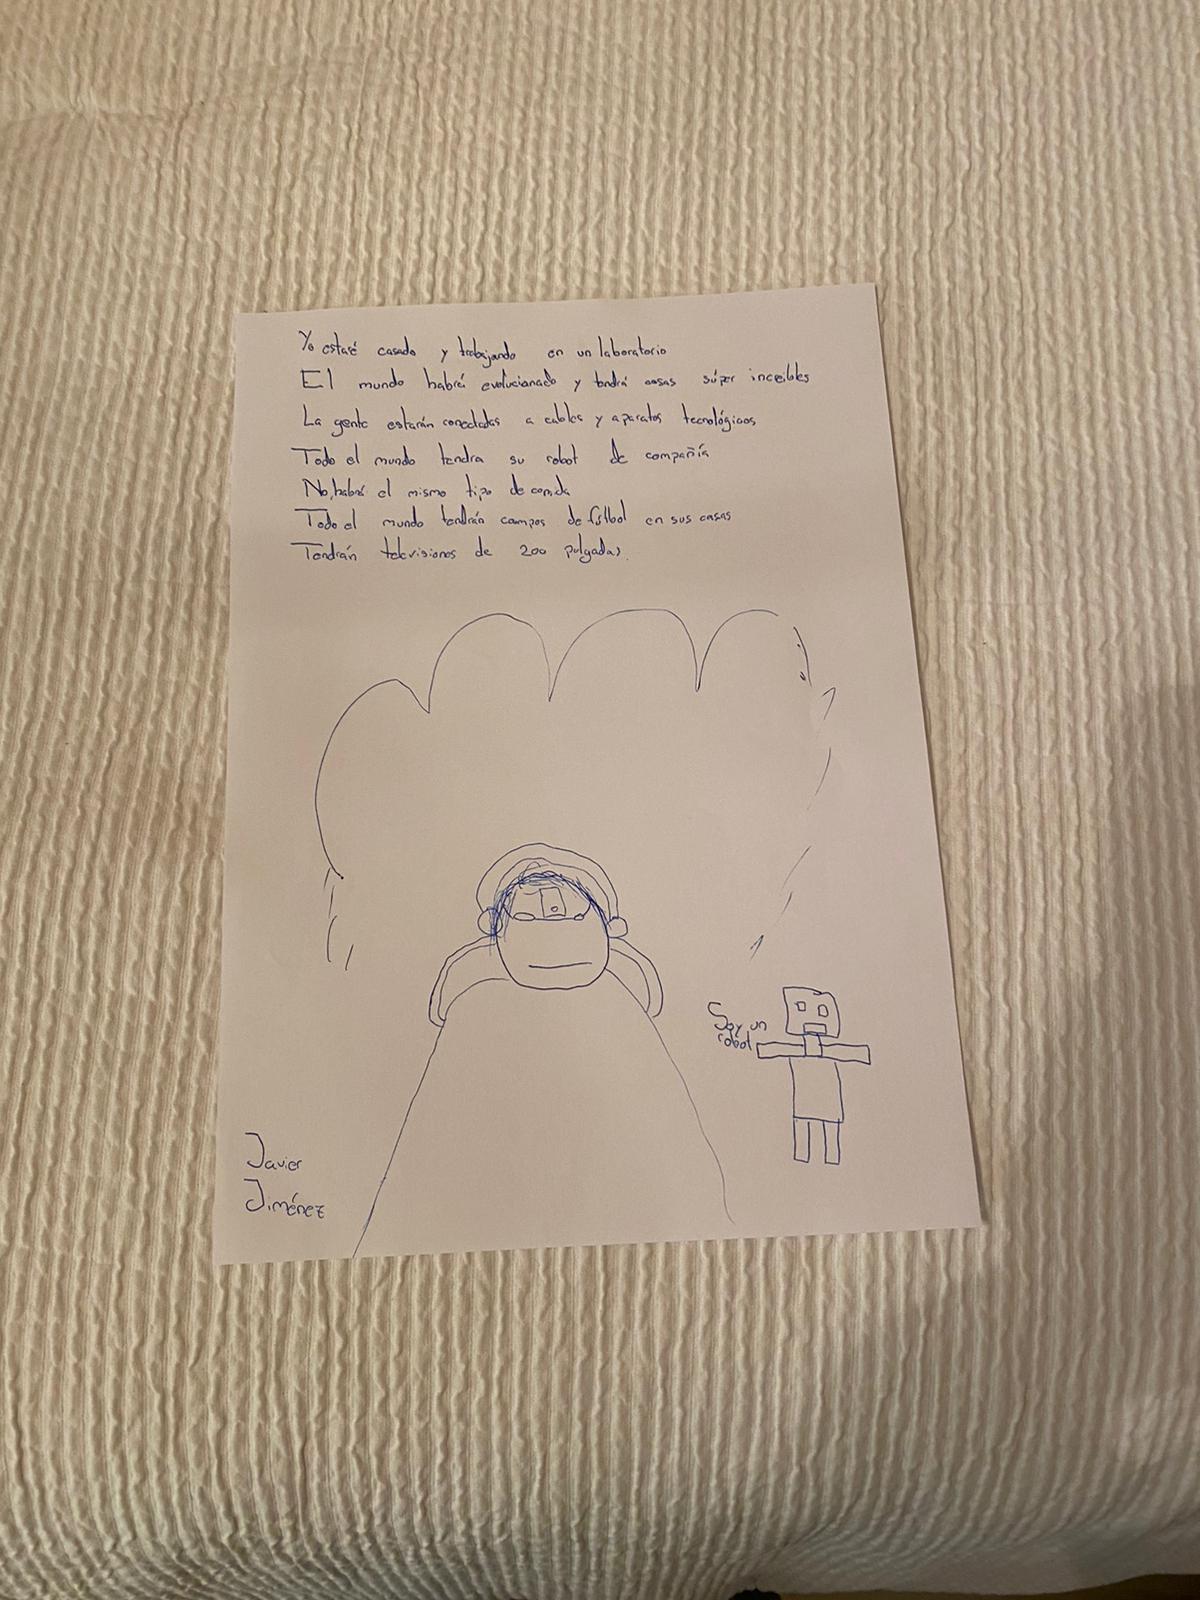 Yo estaré casado y trabajando en un laboratorio
El mundo habrá evolucionado y tendrá cosas súper increibles
La gente estarán conectadas a cables y aparatos tecnológicos
Todo el mundo tendra su robot de compañía
No habrá el mismo tipo de comida
Todo el mundo tendrán campos de fútbol en sus casas
Tendrán televisiones de 200 pulgadas.
Soy un
robot
Javier
Jiménez